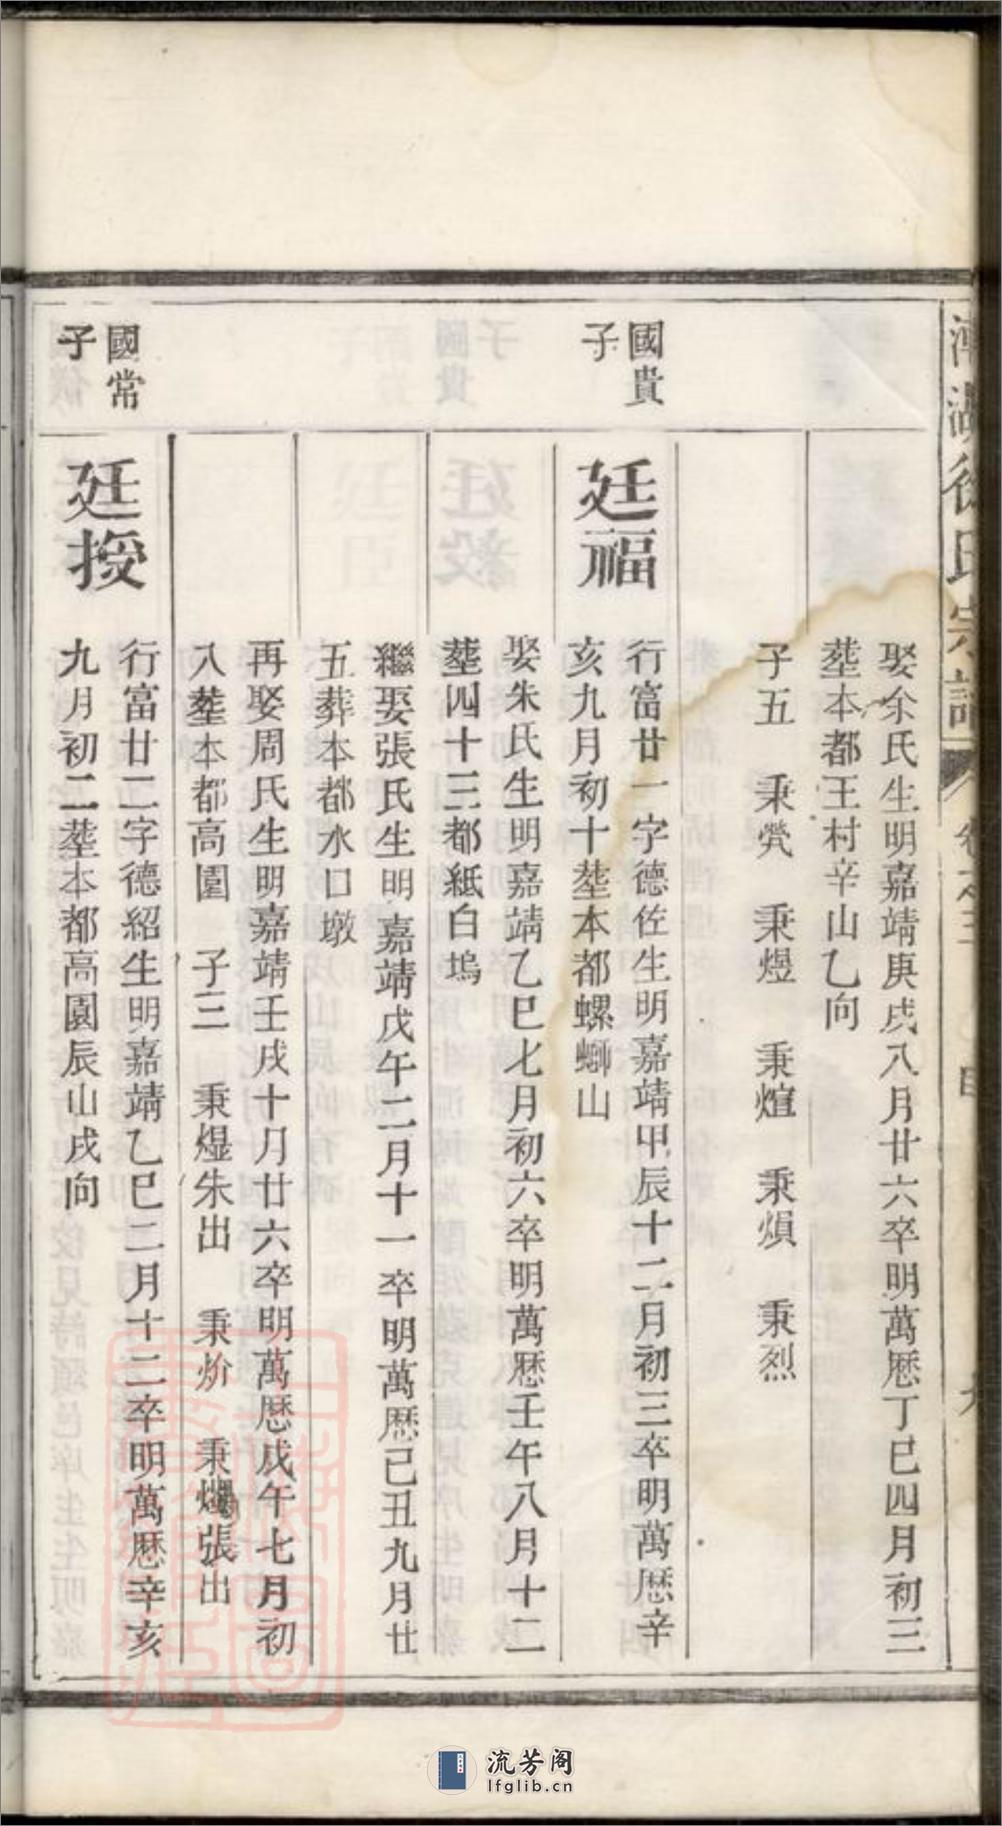 徐氏宗譜
娶余氏生明嘉靖庚戌八月廿六卒明萬厯丁巳四月初三
塟本都王村辛山乙向
子五　秉煢　秉煜　秉煊　秉熉　秉烈
國貴
子
廷福
行富廿一字德佐生明嘉靖甲辰十二月初三卒明萬厯辛
亥九月初十塟本都螺螄山
娶朱氏生明嘉靖乙巳七月初六卒明萬厯壬午八月十二
塟四十三都紙白塢
繼娶張氏生明嘉靖戊午二月十一卒明萬厯己丑九月廿
五葬本都水口墩
再娶周氏生明嘉靖壬戌十月廿六卒明萬厯戊午七月初
八塟本都高園　子三　秉煜朱出　秉炌　秉爛張出
國常
子
廷授
行富廿二字德紹生明嘉靖乙巳二月十二卒明萬厯辛亥
九月初二塟本都高園辰山戌向
流芳阁
lfglib.cn